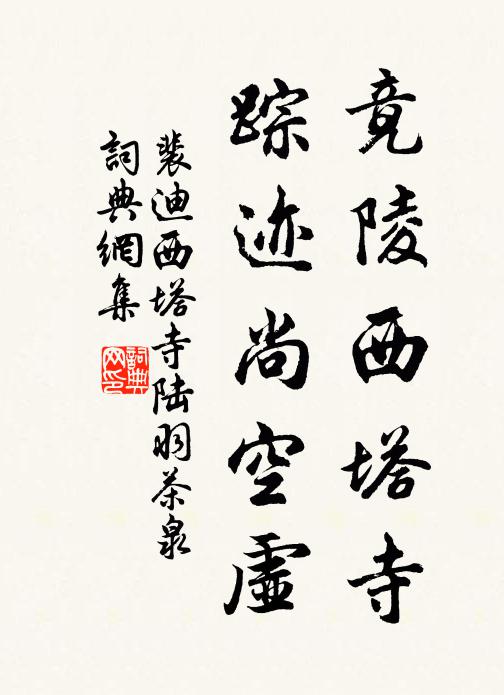 竟陵西塔寺
踪迹尚空虛
裴迪西塔寺陆羽茶泉
詞典網集
詞典网印